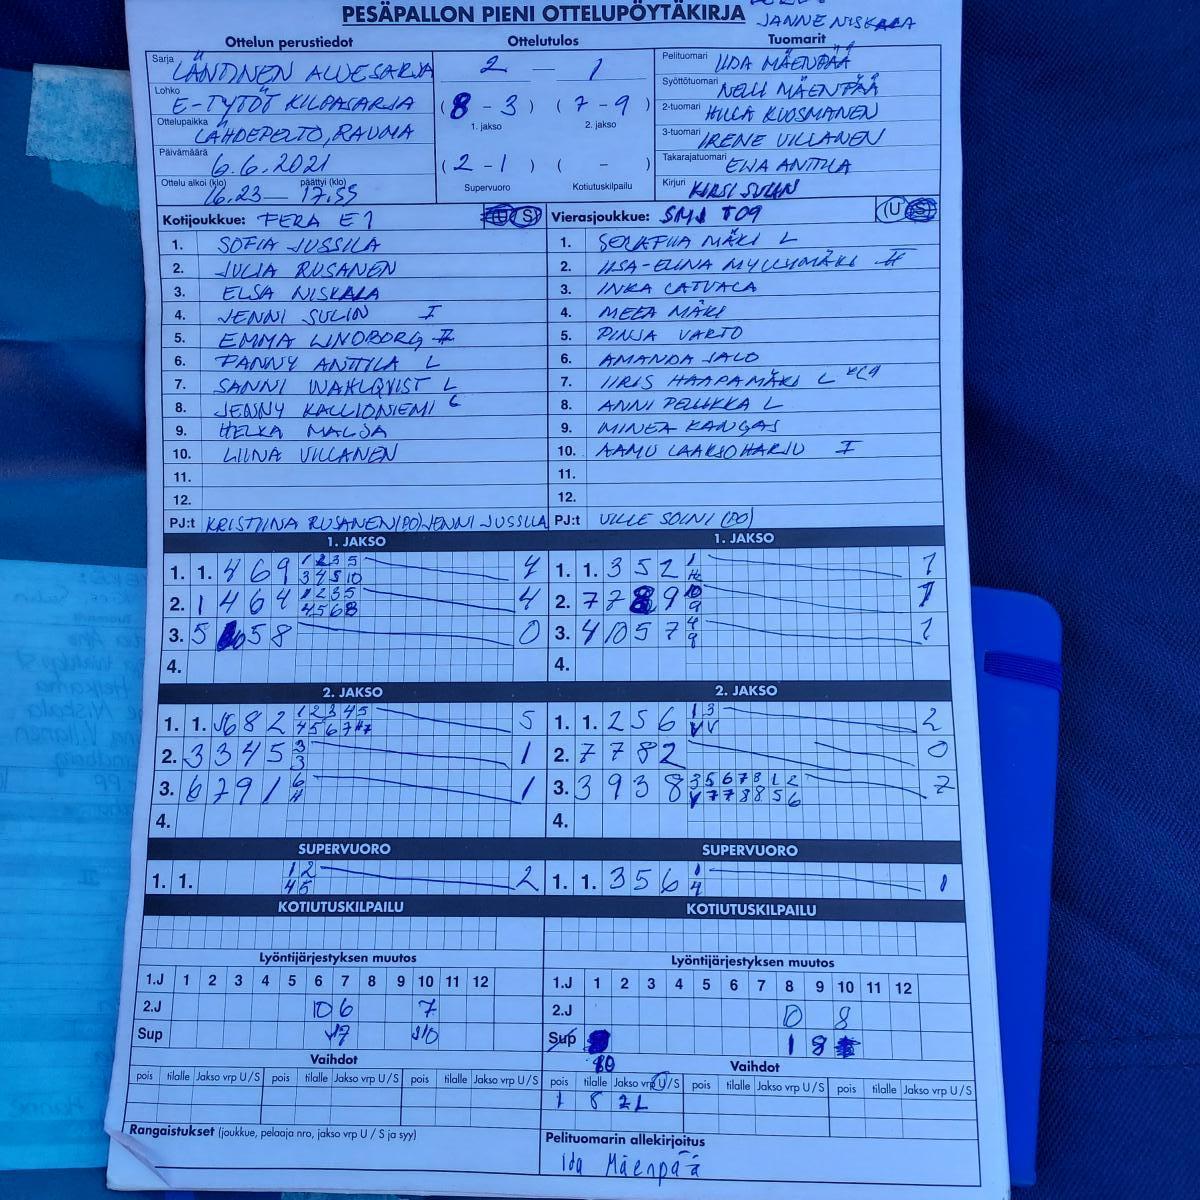 PESÄPALLON PIENI OTTELUPÖYTÄKIRJA
JANNE NISKALA
Ottelun perustiedot Ottelutulos Tuomarit
Sarja LÄNTINEN ALUESARJA 2 — 1 Pelituomari IIDA MÄENPÄÄ
Lohko E-TYTÖT KILPASARJA (8 - 3) (7 - 9) Syöttötuomari NELLI MÄENPÄÄ
1. jakso 2. jakso 2-tuomari HILLA KUOSMANEN
Ottelupaikka LÄHDEPELTO, RAUMA 3-tuomari IRENE VILLANEN
Päivämäärä 6.6.2021 (2 - 1) ( - ) Takarajatuomari EIJA ANTTILA
Ottelu alkoi (klo) 16.23 — päättyi (klo) 17.55 Supervuoro Kotiutuskilpailu Kirjuri KIRSI SULIN
Kotijoukkue: FERA E1 U S Vierasjoukkue: SMJ T09 U S
1. SOFIA JUSSILA 1. MÄKI L
2. JULIA RUSANEN 2. IISA-ELINA MYLLYMÄKI II
3. ELSA NISKALA 3. INKA LATVALA
4. JENNI SULIN I 4. MEEA MÄKI
5. EMMA LINDBORG II 5. PINJA VARTO
6. FANNY ANTTILA L 6. AMANDA JALO
7. SANNI WAHLQVIST L 7. IIRIS HAAPAMÄKI L
8. JENNY KALLIONIEMI L 8. ANNI PELLIKKA L
9. HELKA MALJA 9. MINEA KANGAS
10. LIINA VILLANEN 10. AAMU LAAKSOHARJU I
11. 11.
12. 12.
PJ:t KRISTIINA RUSANEN (PO) JENNI JUSSILA PJ:t VILLE SOINI (PO)
1. JAKSO 1. JAKSO
1. 1. 4 6 9 1 2 3 5 4 1. 1. 3 5 2 1 1
3 4 5 10
2. 1 4 6 4 1 2 3 5 4 2. 7 7 8 9 10 1
4 5 6 8 9
3. 5 5 8 0 3. 4 10 5 7 4 1
9
4. 4.
2. JAKSO 2. JAKSO
1. 1. 6 8 2 1 2 3 4 5 5 1. 1. 2 5 6 1 3 2
4 5 6 7 V V
2. 3 3 4 5 3 1 2. 7 7 8 2 0
3
3. 6 7 9 1 6 1 3. 3 9 3 8 3 5 6 7 8 1 2 7
V 7 7 8 8 5 6
4. 4.
SUPERVUORO SUPERVUORO
1. 1. 1 2 2 1. 1. 3 5 6 1 1
4 5 4
KOTIUTUSKILPAILU KOTIUTUSKILPAILU
Lyöntijärjestyksen muutos Lyöntijärjestyksen muutos
1.J 1 2 3 4 5 6 7 8 9 10 11 12 1.J 1 2 3 4 5 6 7 8 9 10 11 12
2.J 10 6 7 2.J 0 8
Sup 7 10 Sup 1 8
Vaihdot Vaihdot
pois tilalle Jakso vrp U / S pois tilalle Jakso vrp U / S pois tilalle Jakso vrp U / S pois tilalle Jakso vrp U / S pois tilalle Jakso vrp U / S pois tilalle Jakso vrp U / S
1 8 2L
Rangaistukset (joukkue, pelaaja nro, jakso vrp U / S ja syy) Pelituomarin allekirjoitus
Iida Mäenpää